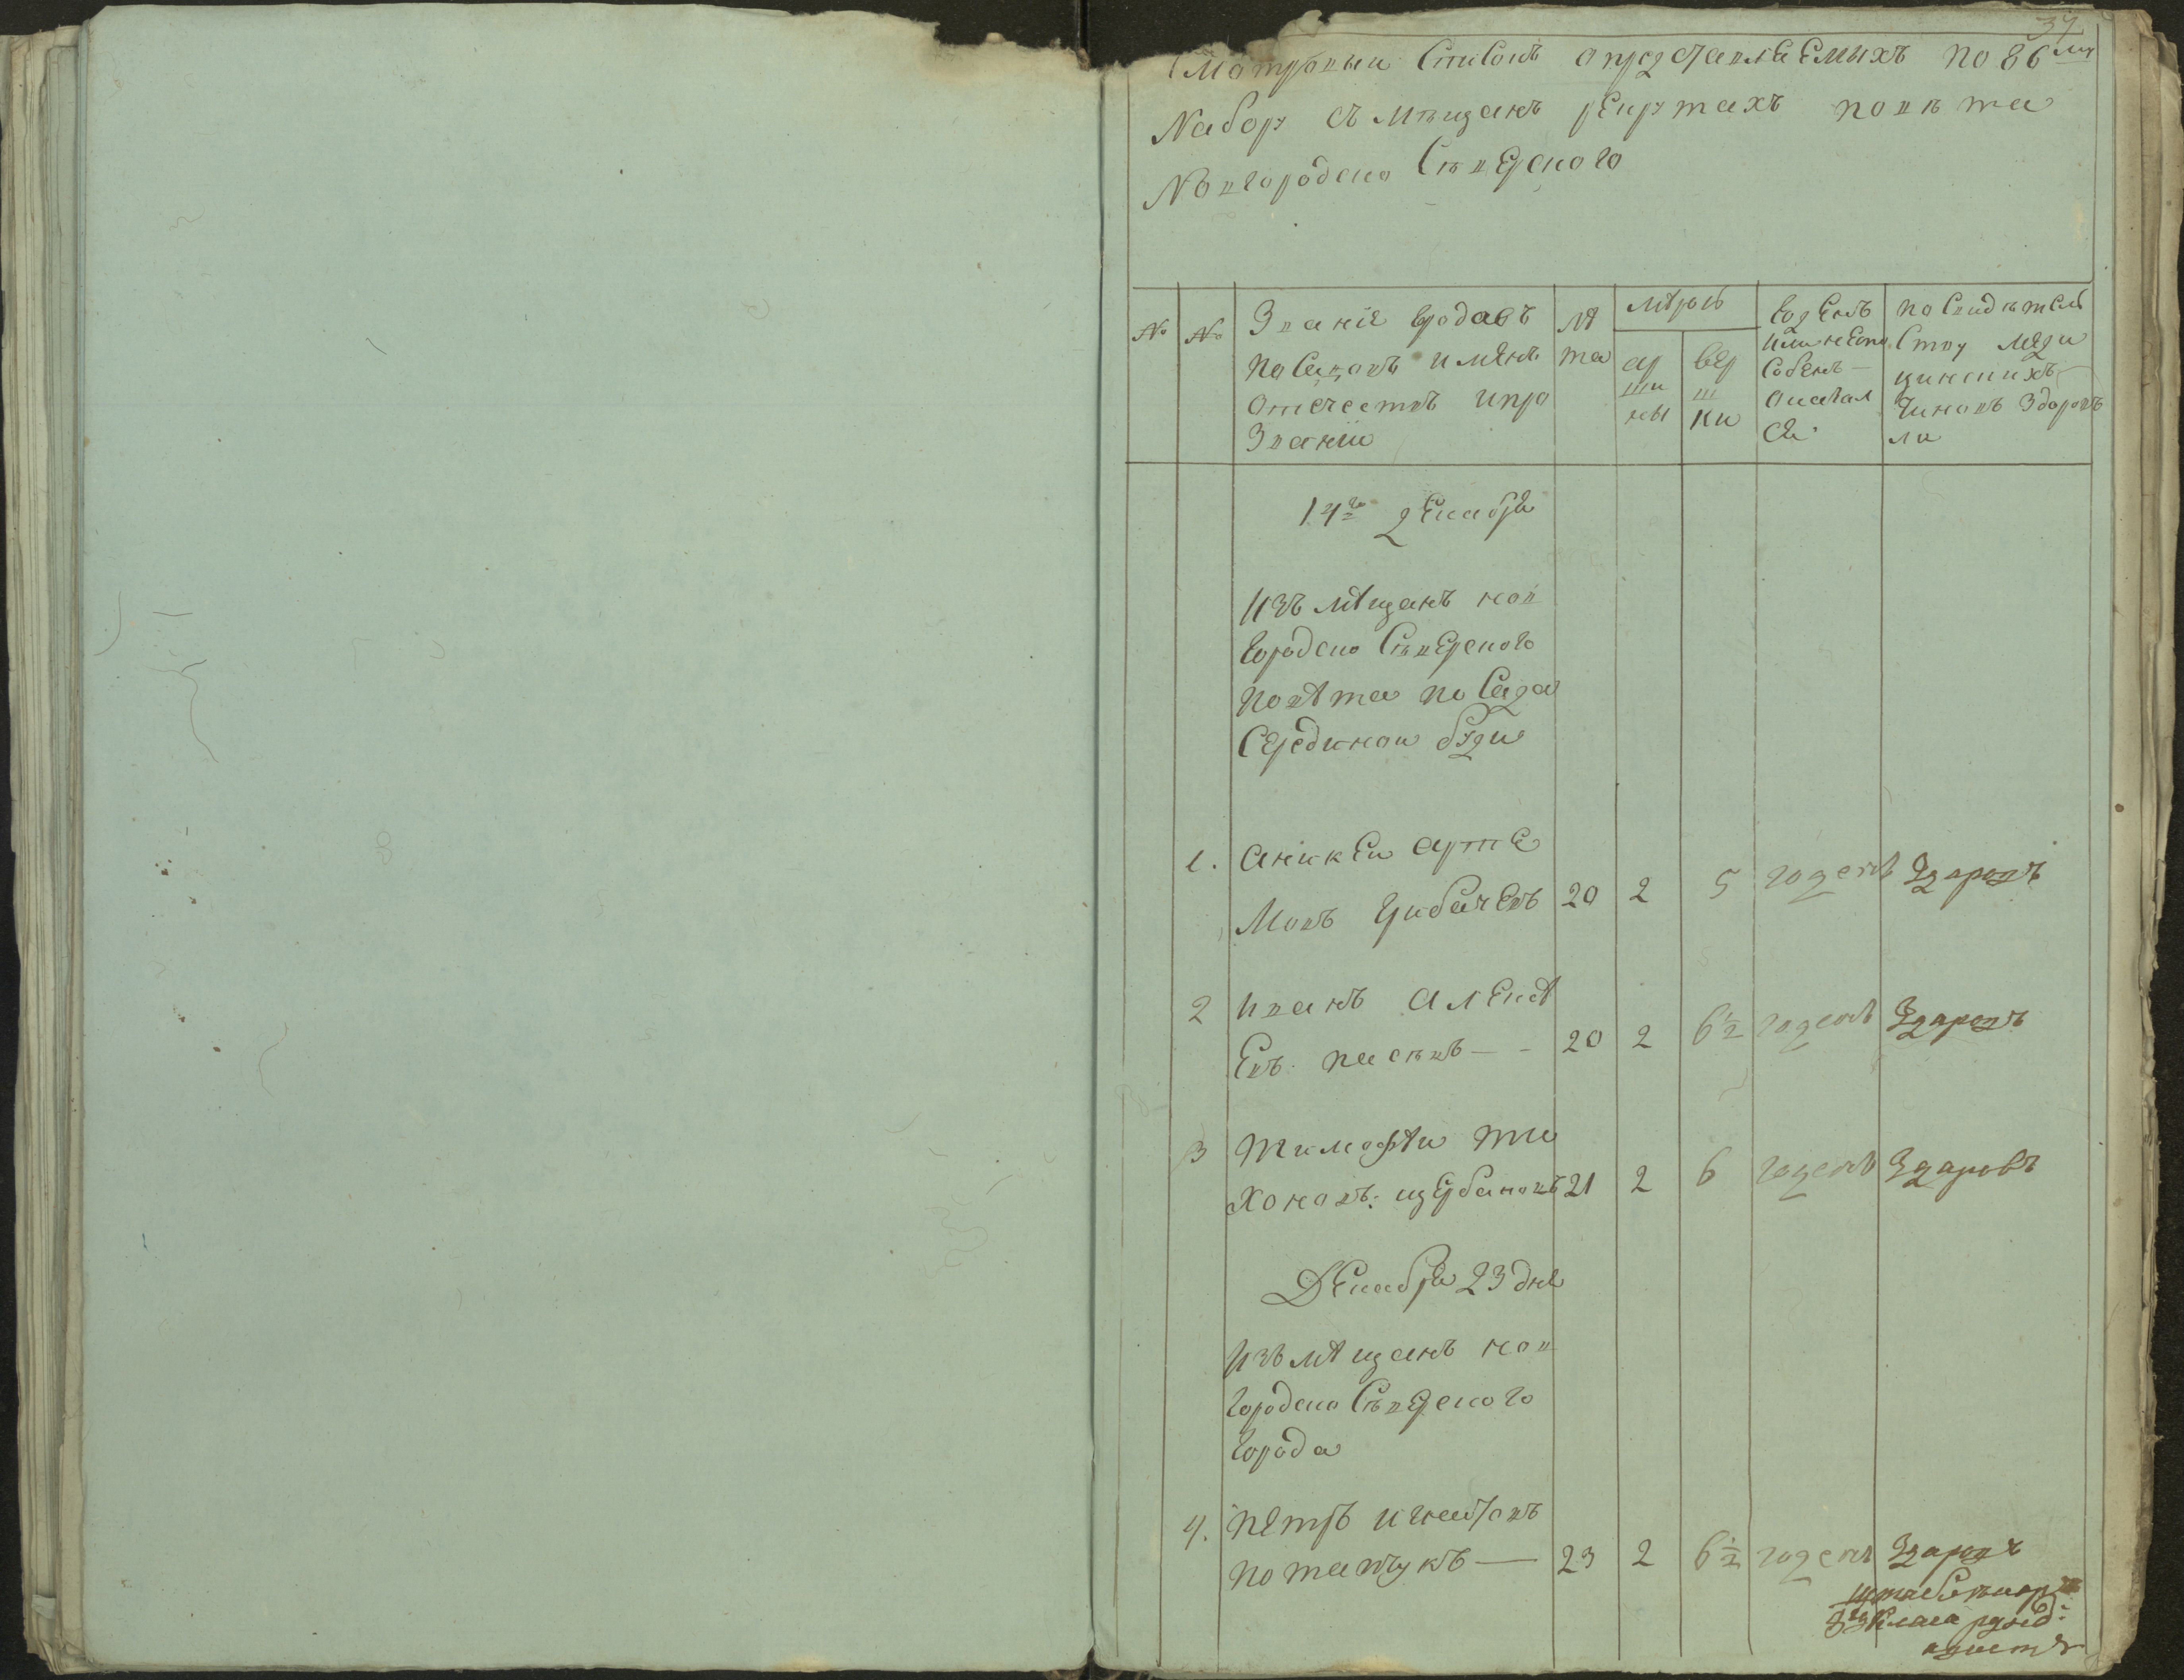 37
Смотровый Списокъ опредставляемыхъ по 86му
Набору съ мѣщанъ рекрутахъ повѣта
Новгородско Сѣверского
№
№
Званіе городовъ
посадовъ именъ
отечествъ и про
званіи
лѣ
та
мѣрою
ар
ши
ны
вер
ш
ки
годенъ
или неспо
собенъ
оказал
ся
по Свидѣтель
ству меди
цинскихъ
чиновъ Здоровъ
ли
14го декабря
Изъ мѣщанъ нов
городско Сѣверского
повѣта посада
Середикой буди
1. аникей арте
мовъ Цибачевъ 20 2 5 годенъ Здаровъ
2 иванъ алексѣ
евъ. пасѣвъ — - 20 2 6½ годенъ Здаровъ
3 Тимофѣи ти
хоновъ: щербаковъ 21 2 6 годенъ Здаровъ
Декабря 23 дня
Изъ мѣщанъ нов
городско Сѣверского
города
4. петръ игнатовъ
потапчукъ — 23 2 6½ годенъ Здаровъ